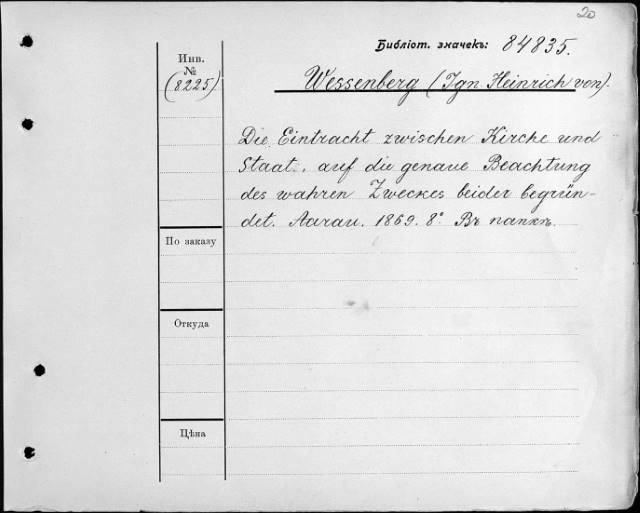 20
Библіот. значекъ: 84835.
Инв.
№
(8225)
Wessenberg (Ign. Heinrich von).
Die Eintracht zwischen Kirche und
Staat, auf die genaue Beachtung
des wahren Zweckes beider begrün-
det. Aarau. 1869. 8° Въ папкѣ.
По заказу
Откуда
Цѣна